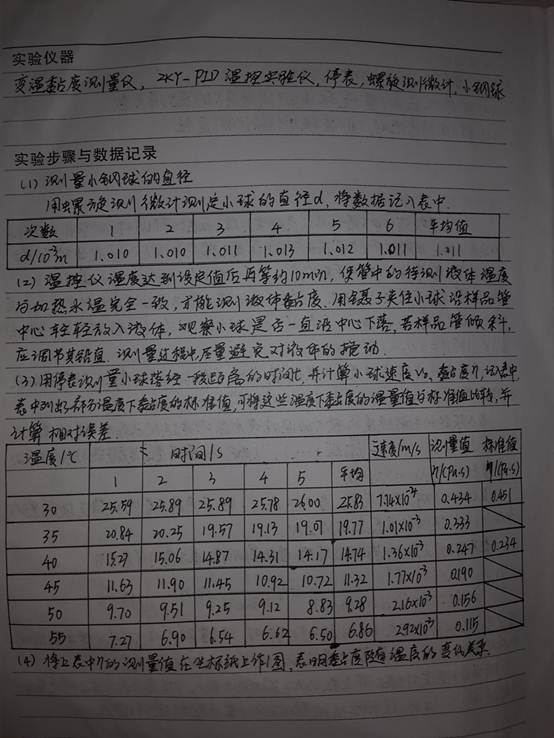 实验仪器
变温黏度测量仪，ZKY-PID温控实验仪，停表，螺旋测微计，小钢球
实验步骤与数据记录
(1) 测量小钢球的直径
用螺旋测微计测定小球的直径d，将数据记入表中.
次数 1 2 3 4 5 6 平均值
d/10⁻³m 1.010 1.010 1.011 1.013 1.012 1.011 1.011
(2) 温控仪温度达到设定值后再等约10min，使管中的待测液体温度
与加热水温完全一致，才能测液体黏度. 用镊子夹住小球沿样品管
中心轻轻放入液体，观察小球是否一直沿中心下落，若样品管倾斜，
应调节其铅直. 测量过程中尽量避免对液体的扰动.
(3) 用停表测量小球落经一段距离的时间t，并计算小球速度v₀，黏度η，记入表中.
表中列出部分温度下黏度的标准值，可将这些温度下黏度的测量值与标准值比较，并
计算相对误差.
温度/℃ 时间/s 速度/m/s 测量值 标准值
1 2 3 4 5 平均 η/(Pa·s) η/(Pa·s)
30 25.59 25.89 25.89 25.78 26.00 25.83 7.74×10⁻⁴ 0.434 0.451
35 20.84 20.25 19.57 19.13 19.07 19.77 1.01×10⁻³ 0.333
40 15.27 15.06 14.87 14.31 14.17 14.74 1.36×10⁻³ 0.247 0.234
45 11.63 11.90 11.45 10.92 10.72 11.32 1.77×10⁻³ 0.190
50 9.70 9.51 9.25 9.12 8.83 9.28 2.16×10⁻³ 0.156
55 7.27 6.90 6.54 6.62 6.50 6.86 2.92×10⁻³ 0.115
(4) 将上表中η的测量值在坐标纸上作图，表明黏度随温度的变化关系.